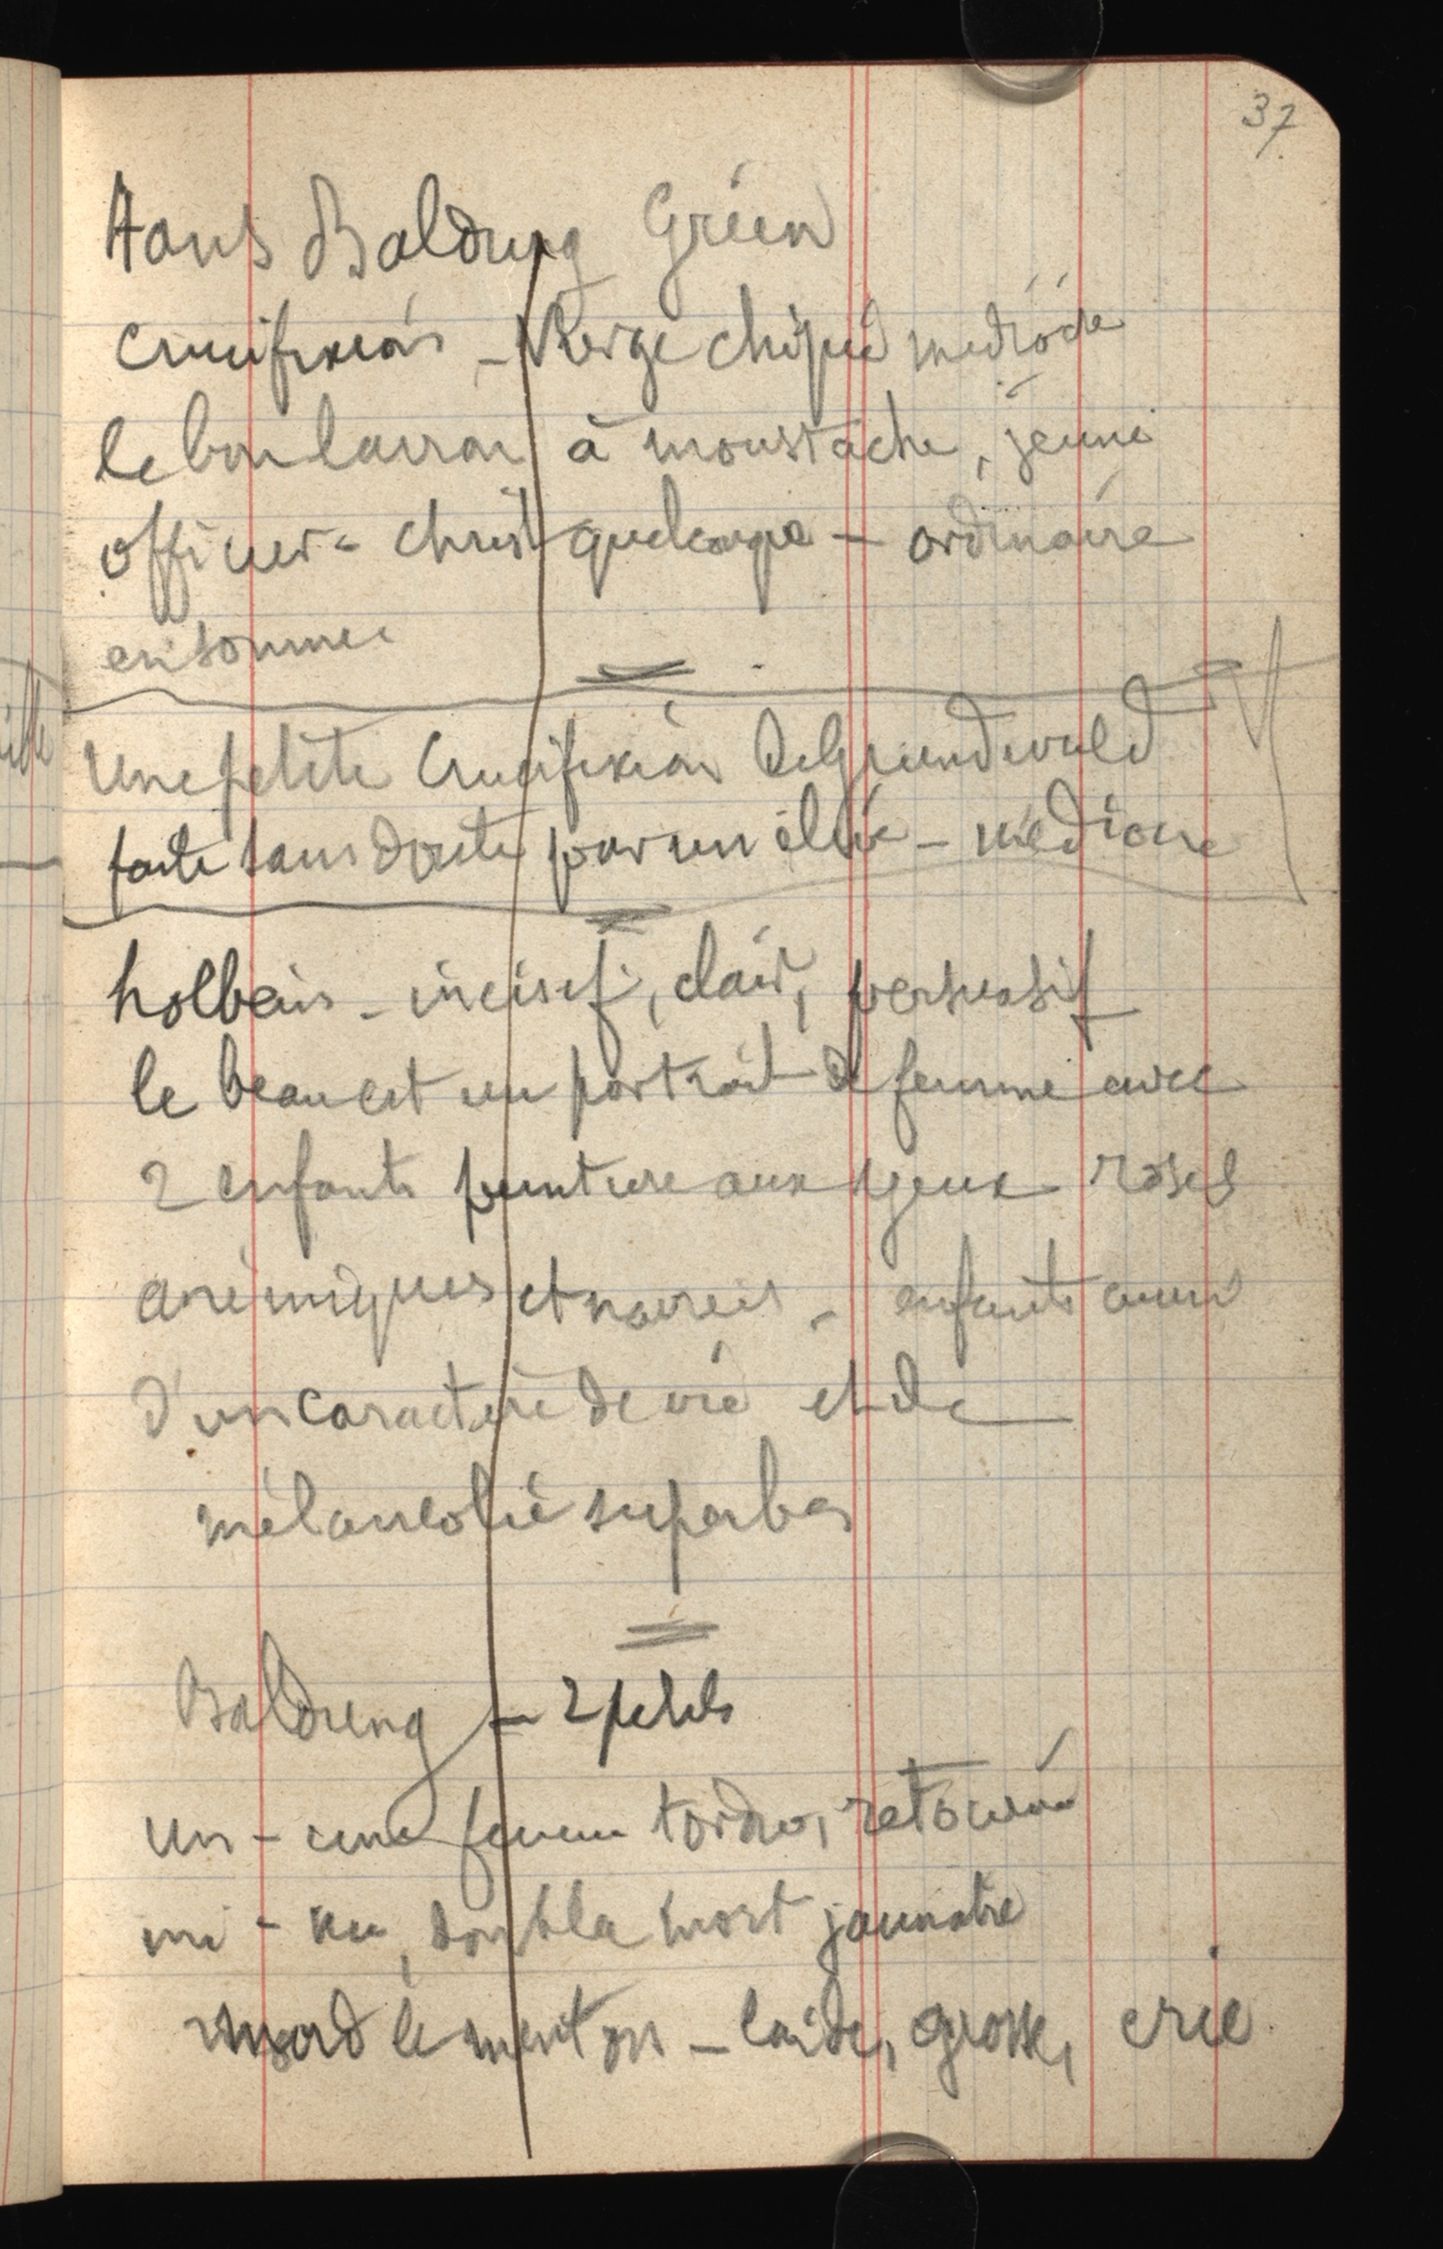 37
Hans Baldung Grien
Crucifixion - Vierge médiocre
le bon larron à moustache, jeune
officier - Christ quelconque - ordinaire
en somme
Une petite Crucifixion de Grunewald
faite sans doute par un élève - médiocre
holbein - incisif, clair, persuasif
le beau est un portrait de femme avec
2 enfants peinture aux yeux roses
anémiques et - enfants aussi
d'un caractère de vie et de
mélancolie superbes
Baldung - 2 petits
un - une femme tordue,
mi-nu, dont la mort jaunatre
mord le menton - laide, grosse, crie